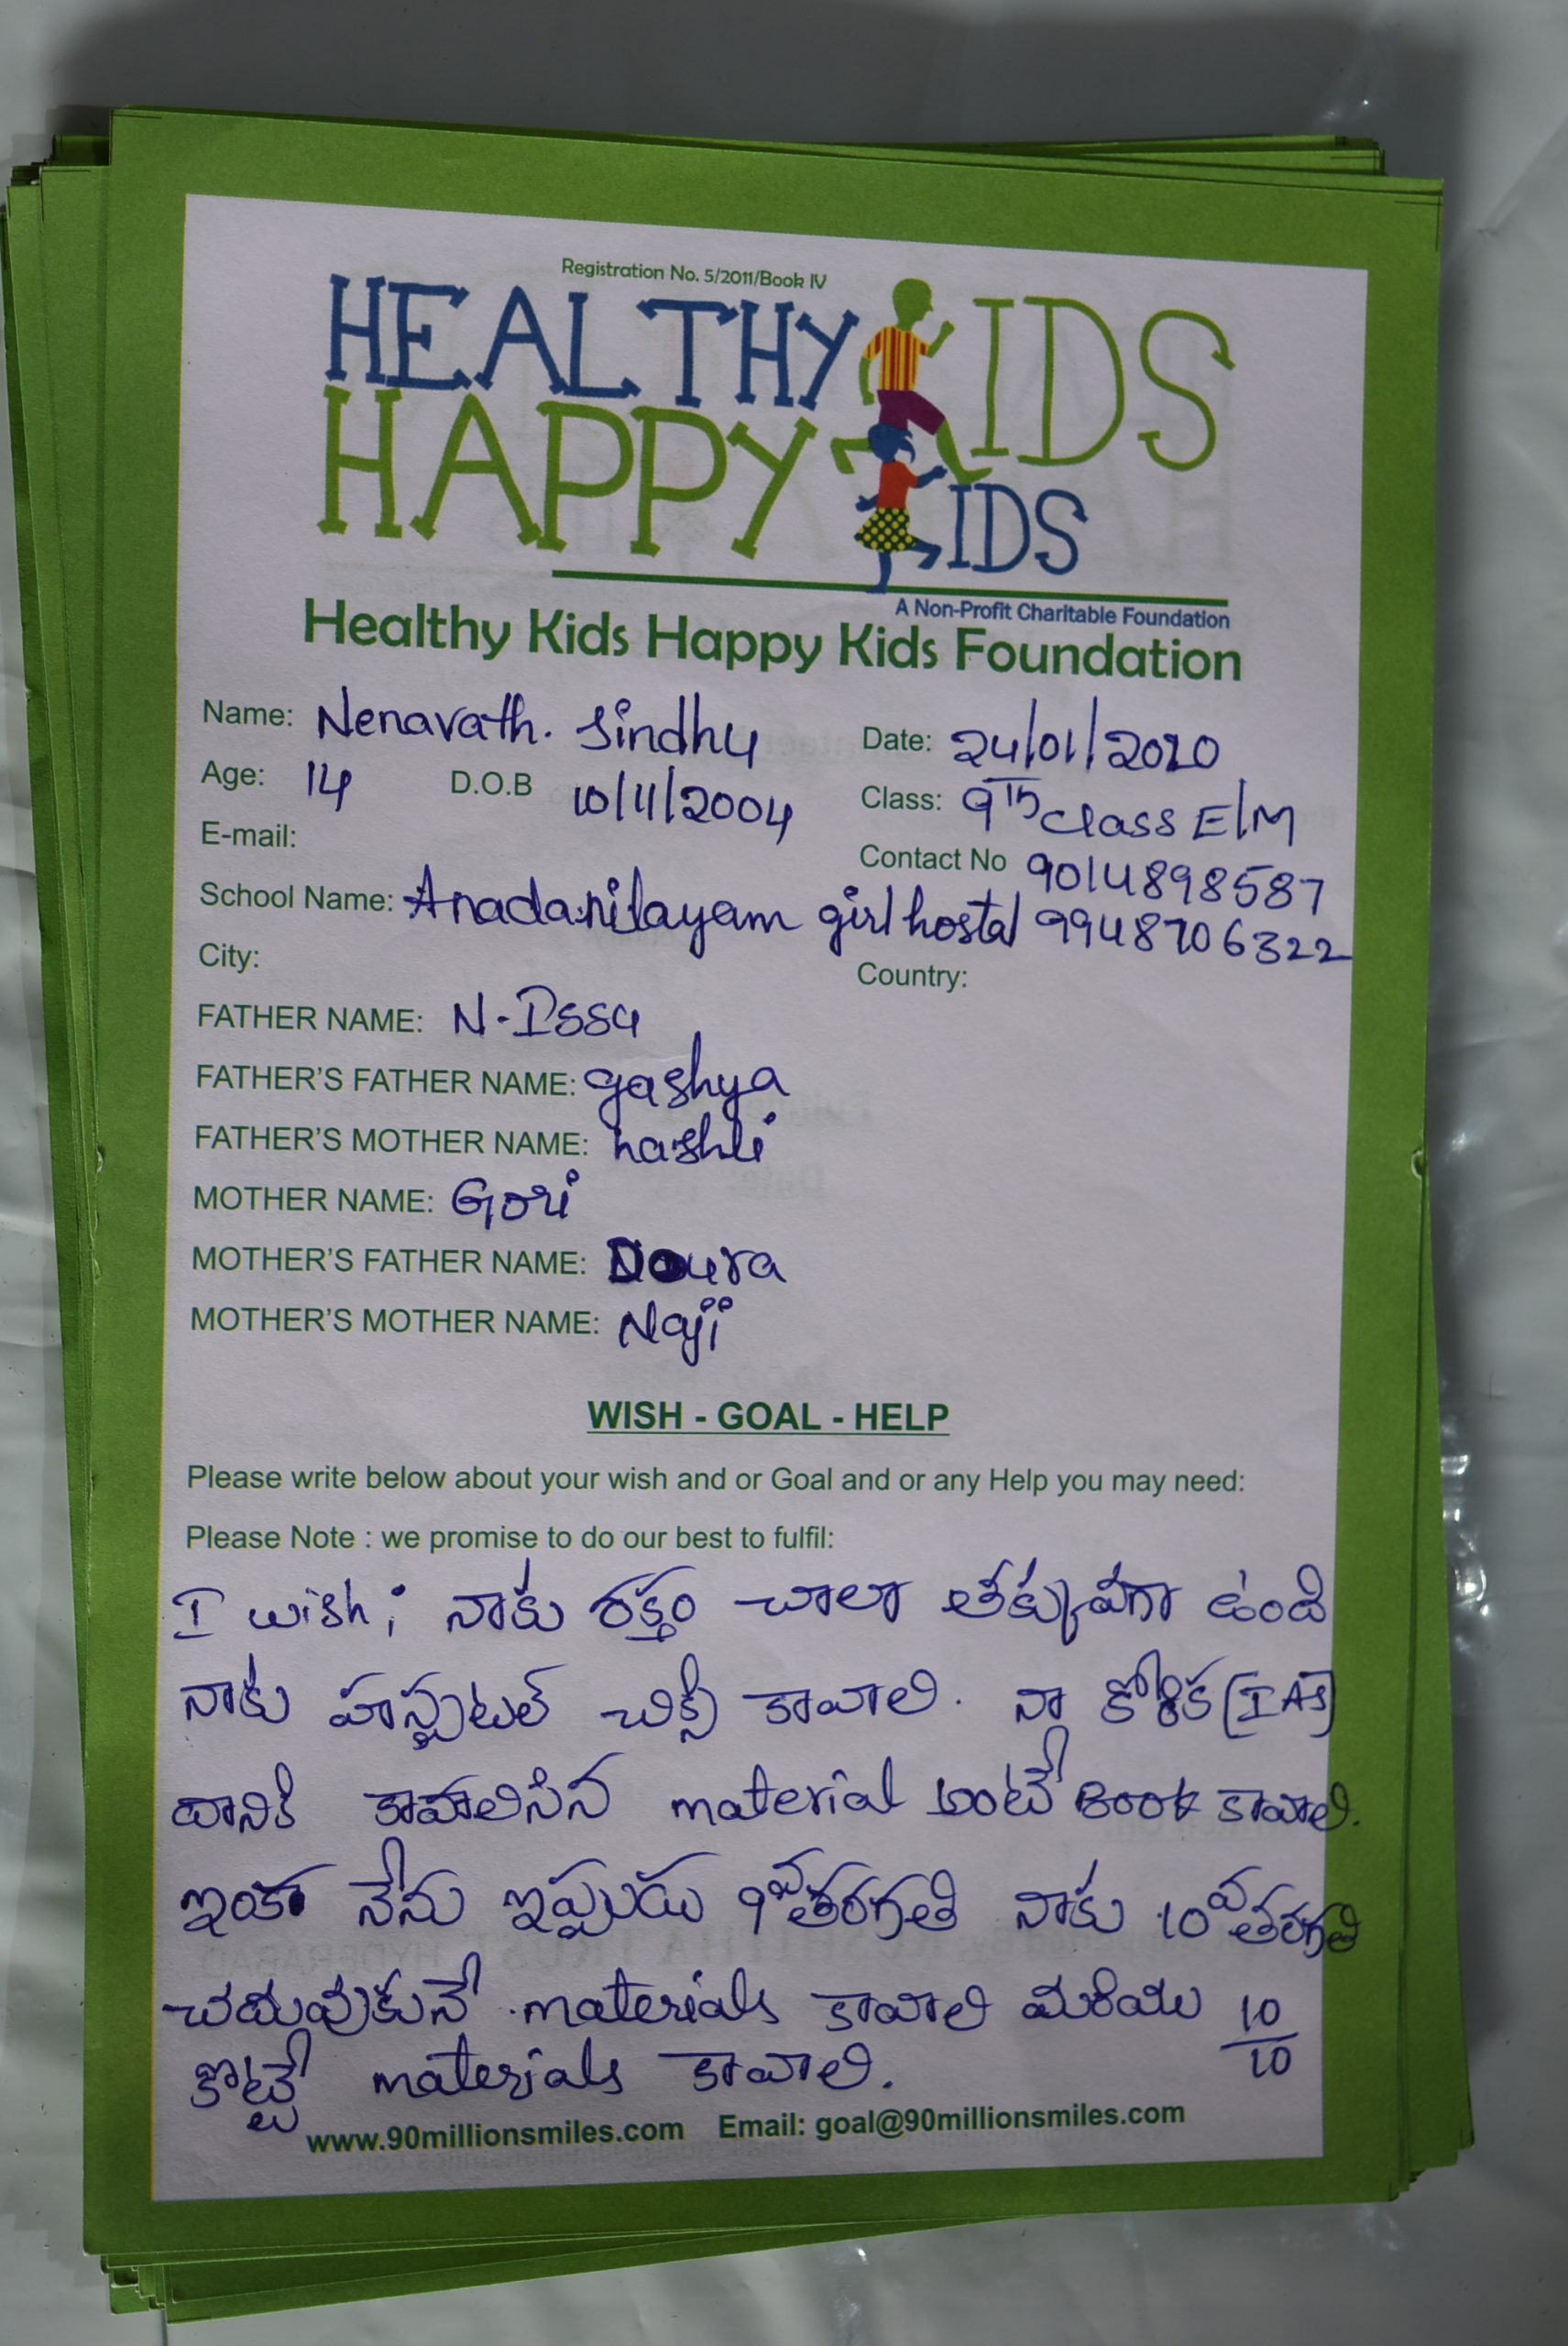 Registration No. 5/2011/Book IV
HEALTHY KIDS
HAPPY KIDS
A Non-Profit Charitable Foundation
Healthy Kids Happy Kids Foundation
Name: Nenavath. Sindhu Date: 24/01/2020
Age: 14 D.O.B 10/11/2004 Class: 9th class E/M
E-mail: Contact No 9014898587
School Name: Anadanilayam girl hostal 9948706322
City: Country:
FATHER NAME: N-Issu
FATHER'S FATHER NAME: gashya
FATHER'S MOTHER NAME: hashli
MOTHER NAME: Gori
MOTHER'S FATHER NAME: Doura
MOTHER'S MOTHER NAME: Naji
WISH - GOAL - HELP
Please write below about your wish and or Goal and or any Help you may need:
Please Note : we promise to do our best to fulfil:
I wish; నాకు రక్తం చాలా తక్కువగా ఉంది
నాకు హస్పుటల్ చిక్సి కావాలి. నా కోరిక [IAS]
దానికి కావాలిసిన material అంటే Book కావాలి.
ఇంకా నేను ఇప్పుడు 9వ తరగతి నాకు 10వ తరగతి
చదువుకునే materials కావాలి మరియు 10/10
కొట్టే materials కావాలి.
www.90millionsmiles.com Email: goal@90millionsmiles.com